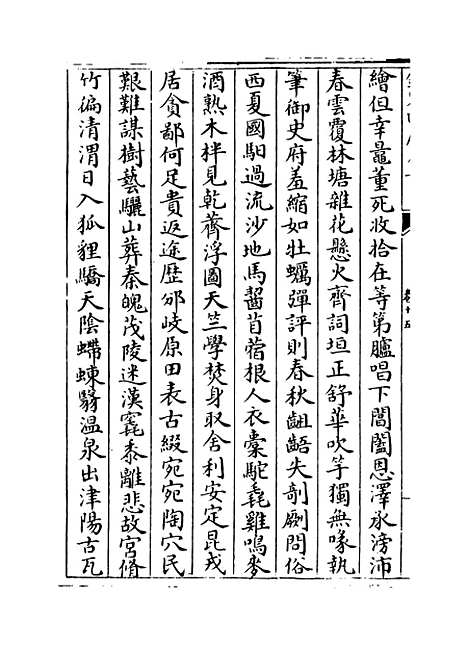 繪但幸鼂董死收拾在等第臚唱下閶闔恩澤永滂沛
春雲覆林塘雜花懸火齊詞垣正舒華吹竽獨無喙執
筆御史府羞縮如牡蠣彈評則春秋齟齬失剞劂問俗
西夏國馹過流沙地馬齧苜蓿根人衣橐駝毳雞鳴麥
酒熟木柈見乾薺浮圖天竺學焚身取舍利安定昆戎
居貪鄙何足貴返途歷邠岐原田表古綴宛宛陶穴民
艱難謀樹藝驪山葬秦魄茂陵迷漢竁黍離悲故宮脩
竹徧清渭日入狐狸驕天陰螮蝀翳温泉出津陽古瓦
卷十五